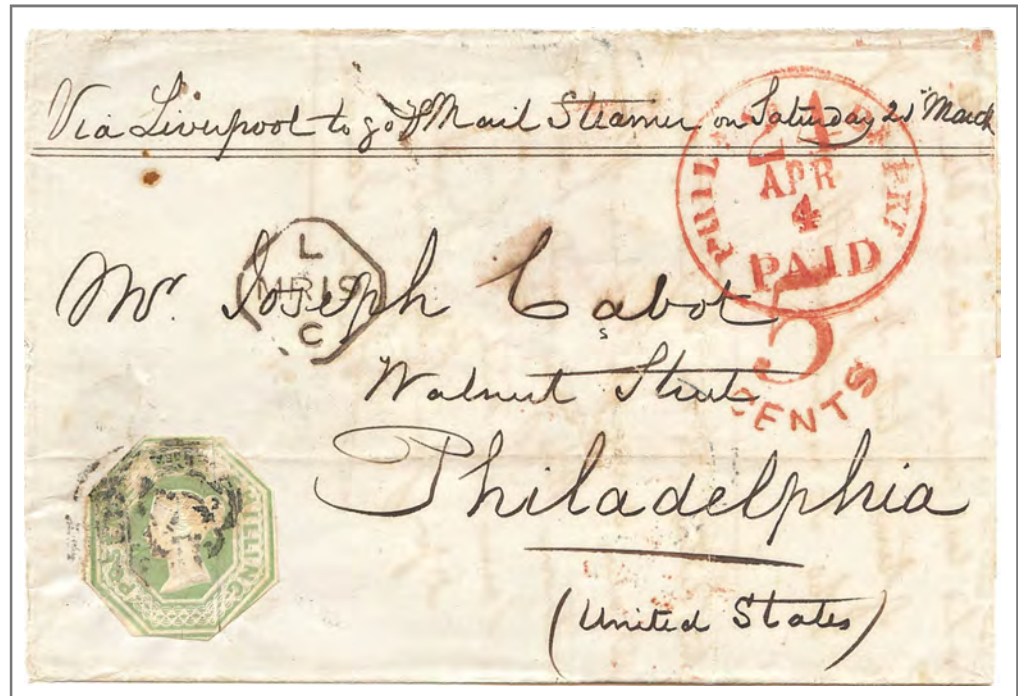 Via Liverpool to go P Mail Steamer on Saturday 21st March
PHIL
24
APR
4
PAID
5
CENTS
L
MR19
C
Mr. Joseph Cabot
s
Walnut Street
Philadelphia
(United States)
SHILLING